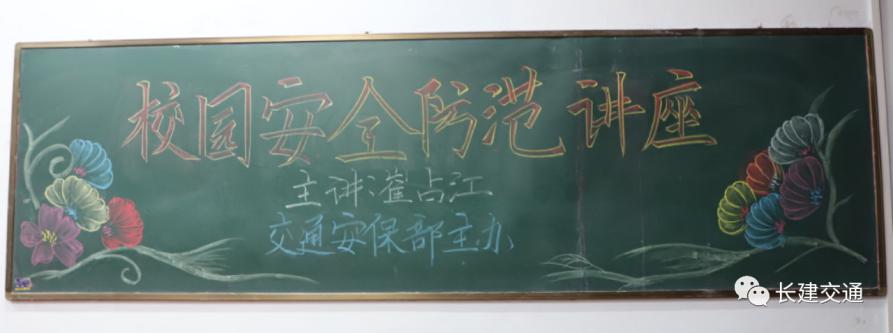 校园安全防范讲座
主讲:崔占江
交通安保部主办
长建交通